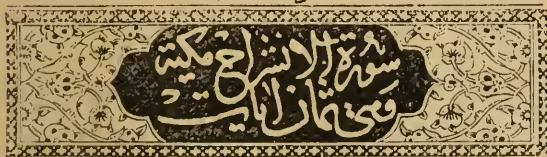 سورة الانشراح مكية
وهى ثمان ايات